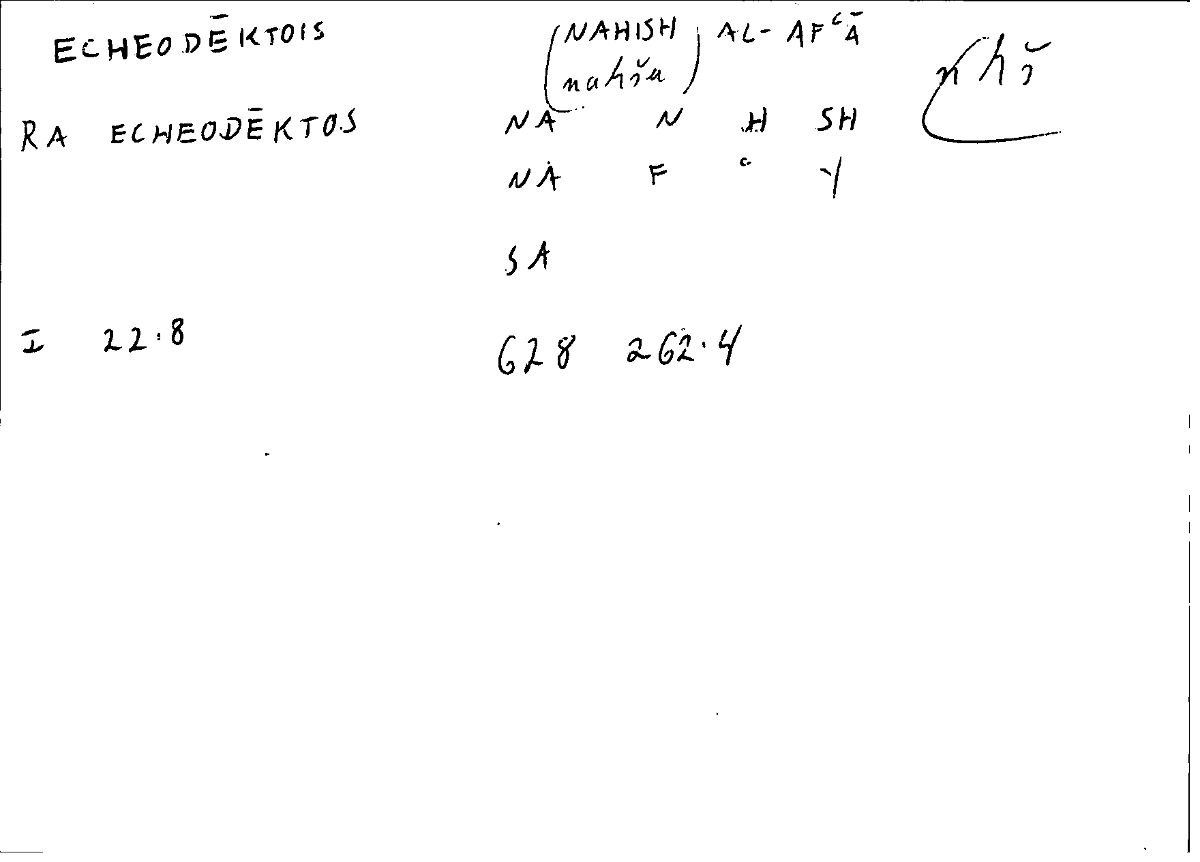 ECHEODĒKTOIS (NAHISH nahša) AL-AFꜤĀ nhš
RA ECHEODĒKTOS NA N H SH
NA F Ꜥ Y
SA
I 22.8 628 262.4